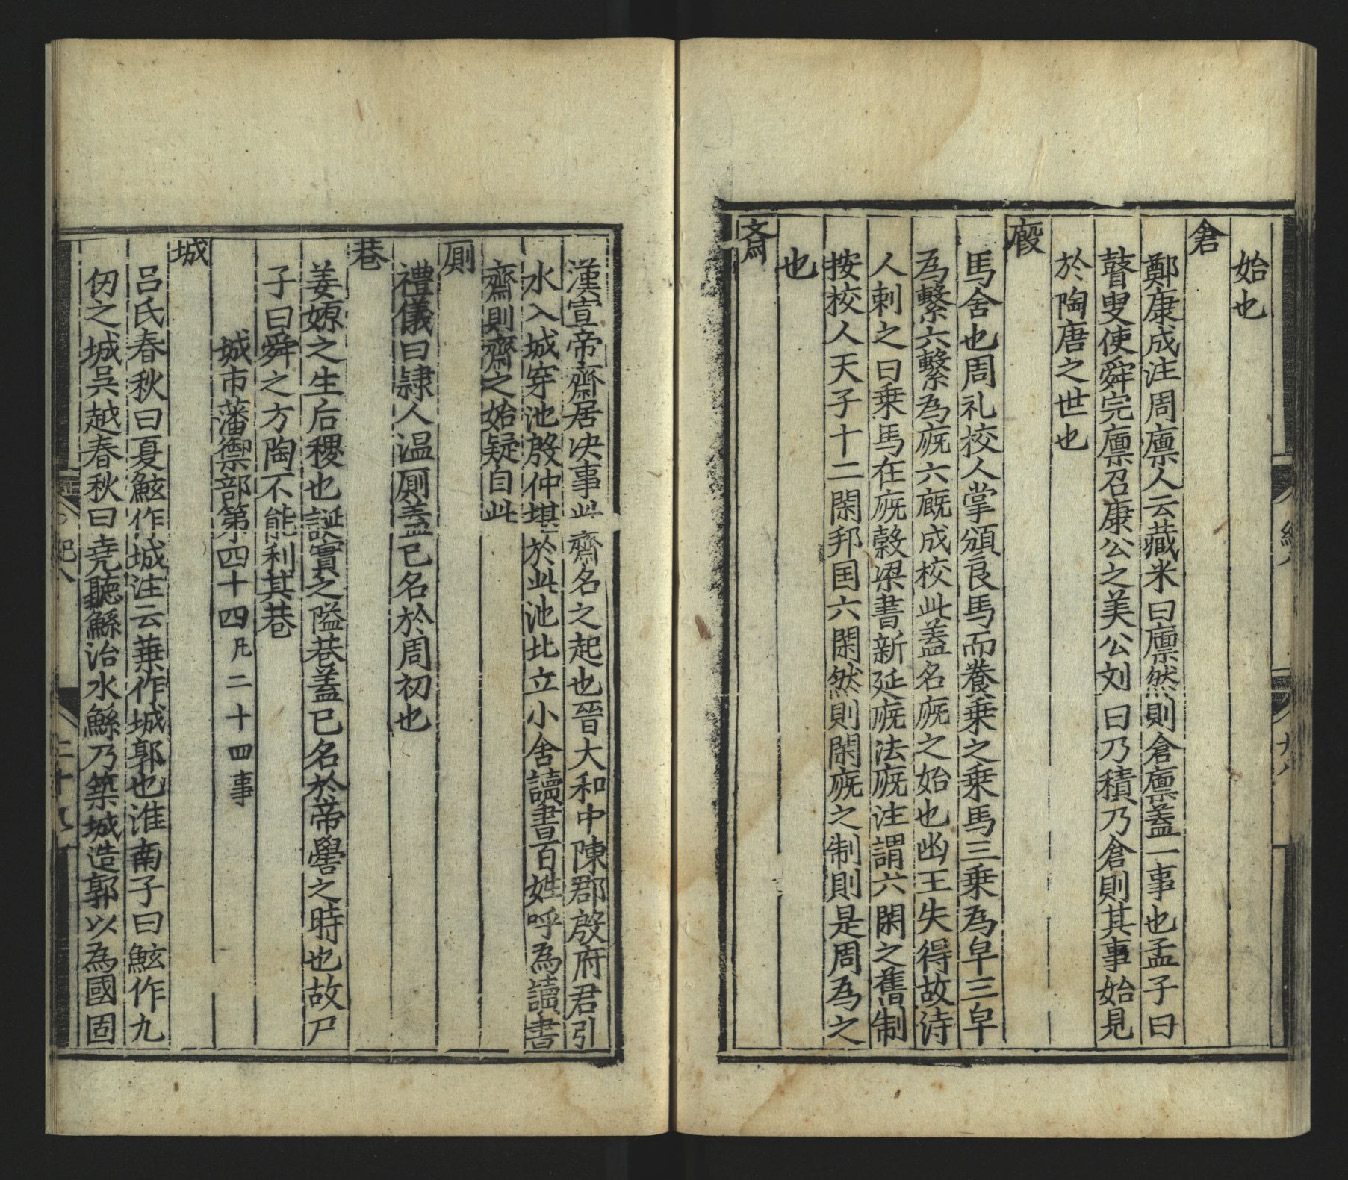 始也
倉
鄭康成注周廩人云藏米曰廩然則倉廩蓋一事也孟子曰
瞽叟使舜完廩召康公之美公刘曰乃積乃倉則其事始見
於陶唐之世也
廄
馬舍也周礼校人掌頒良馬而養乗之乗馬三乗為皁三皁
為繫六繫為廐六廐成校此蓋名廐之始也幽王失得故诗
人刺之曰乗馬在廐穀梁書新延廐法廐注謂六閑之舊制
按校人天子十二閑邦国六閑然則閑廐之制則是周為之
也
斎
漢宣帝齋居决事此齋名之起也晉大和中陳郡殷府君引
水入城穿池殷仲堪於此池北立小舍讀書百姓呼為讀書
齋則齋之始疑自此
厠
禮儀曰隷人温厠蓋已名於周初也
巷
姜嫄之生后稷也誕寘之隘巷蓋已名於帝嚳之時也故尸
子曰舜之方陶不能利其巷
城市藩禦部第四十四凡二十四事
城
吕氏春秋曰夏鮌作城注云葉作城郭也淮南子曰鮌作九
仞之城吳越春秋曰尭聽鯀治水鯀乃築城造郭以為國固
紀八